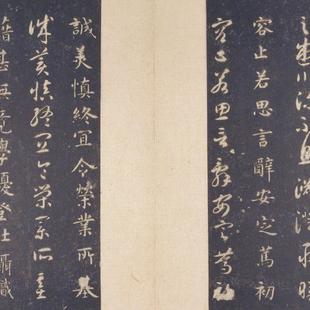 之盛川流不息淵澄取暎
容止若思言辭安定篤初
容止若思言辭安定篤初
誠美慎終宜令榮業所基
誠美慎終宜令榮業所基
籍甚無竟學優登仕攝職